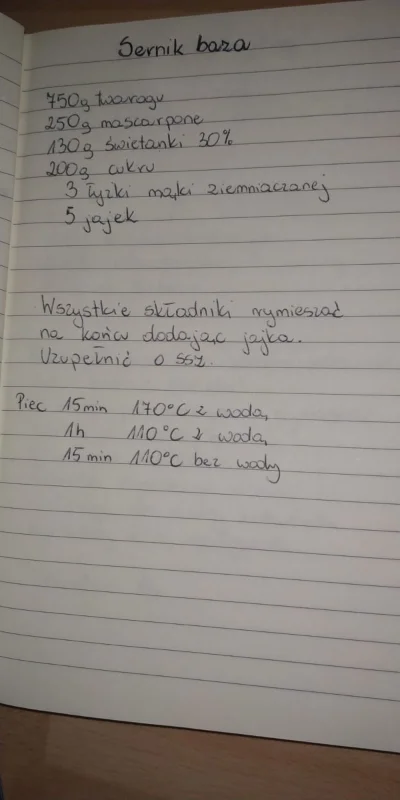 Sernik baza
750g twarogu
250g mascarpone
130g świetanki 30%
200g cukru
3 łyżki mąki ziemniaczanej
5 jajek
Wszystkie składniki wymieszać
na końcu dodając jajka.
Uzupełnić o
Piec 15min 170°C z wodą,
1h 110°C z wodą,
15min 110°C bez wody